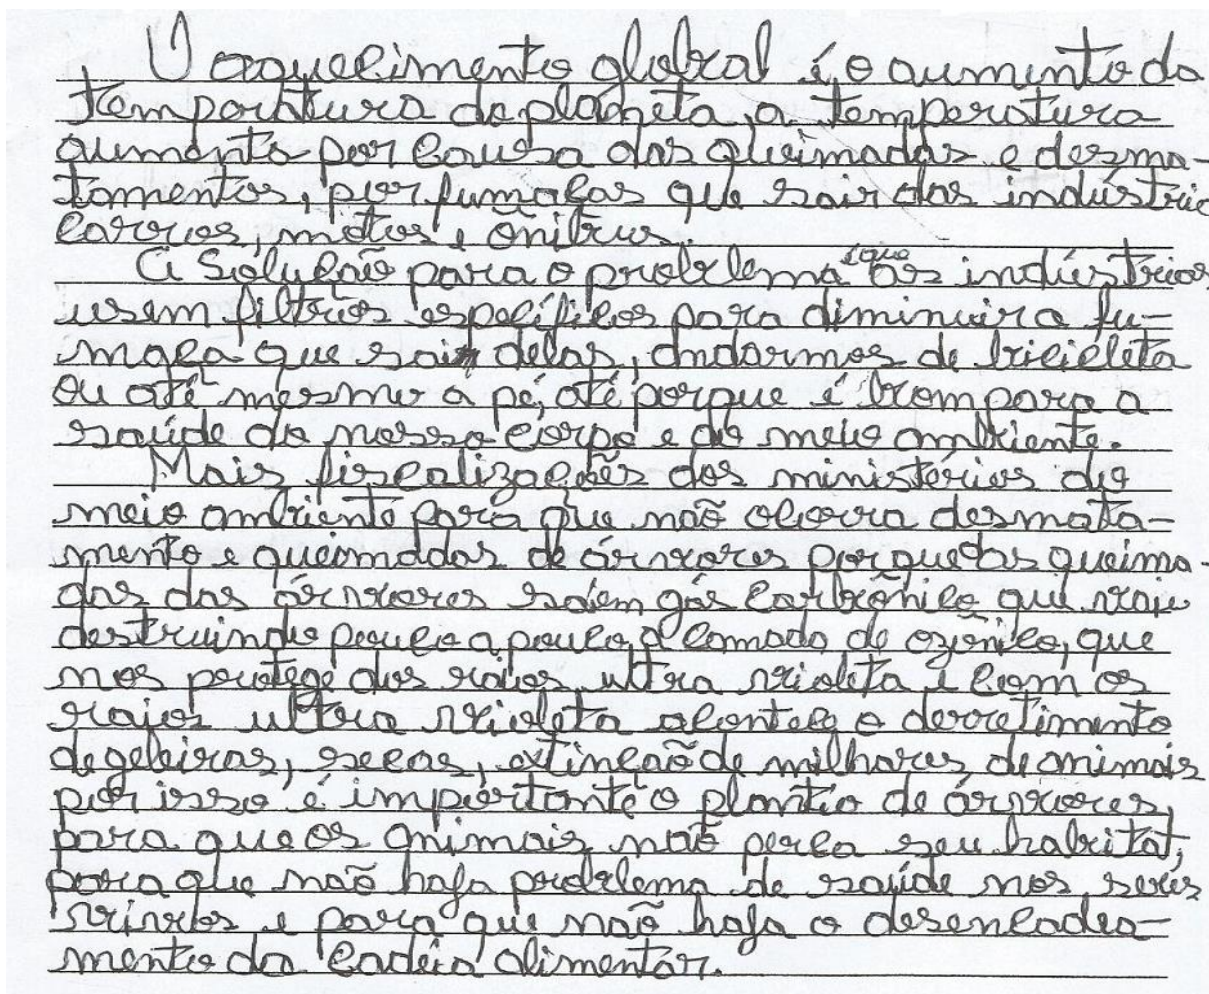 O aquecimento global é o aumento da
temporatura do planeta, a temperatura
aumenta por causa das queimadas e desma-
tamentos, por fumaças que sair das indústric
carros, motos e ônibus.
A Solução para o problema é que as indústrias
usem filtros específicos para diminuir a fu-
maça que sai delas, andarmos de bicicleta
ou até mesmo a pé, até porque é bom para a
saúde do nosso corpo e do meio ambiente.
Mais fiscalizações dos ministérios do
meio ambiente para que não ocorra desmata-
mento e queimadas de árvores porque das queima-
das das árvores saem gás carbônico que vai
destruindo pouco a pouco a camada de ozônico, que
nos protege dos raios ultra violeta, e com os
raios ultra violeta acontece o derretimento
de geleiras, secas, extinção de milhares de animais
por isso é importante o plantio de árvores,
para que os animais não perca seu habitat,
para que não haja problema de saúde nos seres
vivos e para que não haja o desencadea-
mento da cadeia alimentar.